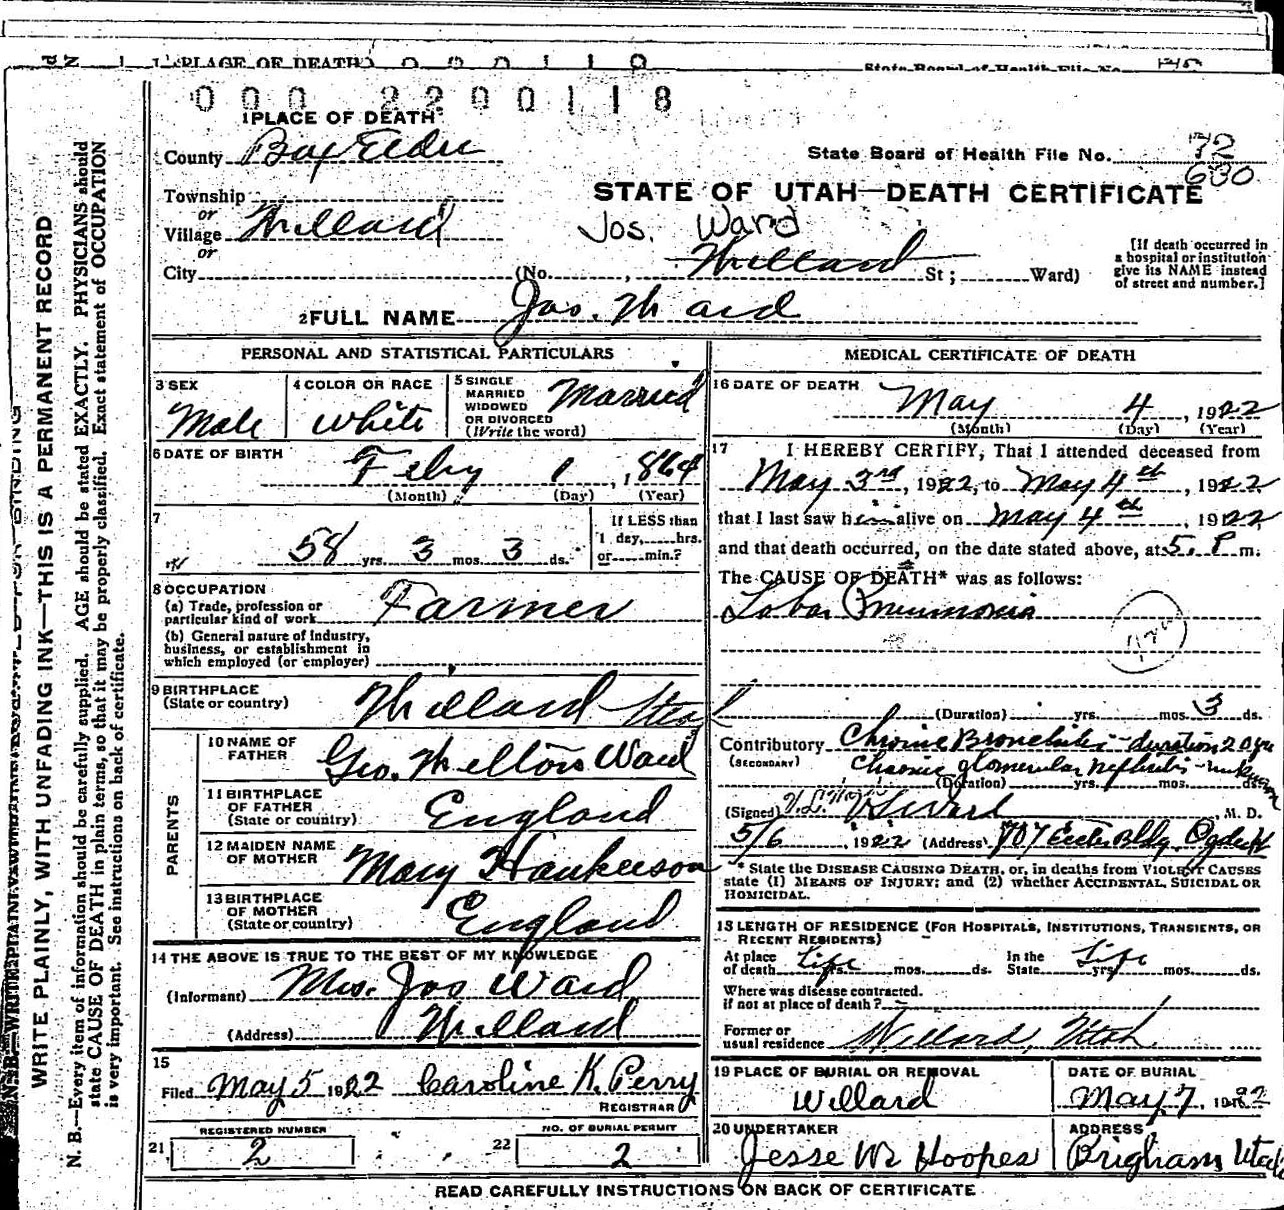 1 PLACE OF DEATH 0 0 0 1 1 8
State Board of Health File No.
0 0 0 2 2 0 0 1 1 8
1 PLACE OF DEATH
County Box Elder
State Board of Health File No. 72
630
Township
or
Village Willard
or
City
STATE OF UTAH—DEATH CERTIFICATE
Jos. Ward
(No. , Willard St; Ward)
[If death occurred in
a hospital or institution
give its NAME instead
of street and number.]
2 FULL NAME Jos. Ward
PERSONAL AND STATISTICAL PARTICULARS
3 SEX
Male
4 COLOR OR RACE
White
5 SINGLE
MARRIED
WIDOWED
OR DIVORCED
(Write the word)
Married
6 DATE OF BIRTH
Feby 1, 1864
(Month) (Day) (Year)
7
58 yrs. 3 mos. 3 ds.
If LESS than
1 day, hrs.
or min.?
8 OCCUPATION
(a) Trade, profession or
particular kind of work Farmer
(b) General nature of Industry,
business, or establishment in
which employed (or employer)
9 BIRTHPLACE
(State or country) Willard Utah
PARENTS
10 NAME OF
FATHER Geo. Welton Ward
11 BIRTHPLACE
OF FATHER
(State or country) England
12 MAIDEN NAME
OF MOTHER Mary Hankerson
13 BIRTHPLACE
OF MOTHER
(State or country) England
14 THE ABOVE IS TRUE TO THE BEST OF MY KNOWLEDGE
(Informant) Mrs. Jos Ward
(Address) Willard
15
Filed May 5 1922 Caroline K. Perry
REGISTRAR
21. REGISTERED NUMBER
2
22 NO. OF BURIAL PERMIT
2
MEDICAL CERTIFICATE OF DEATH
16 DATE OF DEATH
May 4, 1922
(Month) (Day) (Year)
17 I HEREBY CERTIFY, That I attended deceased from
May 3rd, 1922, to May 4th, 1922
that I last saw him alive on May 4th, 1922
and that death occurred, on the date stated above, at 5. P m.
The CAUSE OF DEATH* was as follows:
Lobar Pneumonia
(Duration) yrs. mos. 3 ds.
Contributory Chronic Bronchitis - duration 20 yrs
(SECONDARY) Chronic glomerular nephritis - unknown
(Duration) yrs. mos. ds.
(Signed) Ward M. D.
5/6, 1922 (Address) 707 Eccles Bldg Ogden
* State the DISEASE CAUSING DEATH, or, in deaths from VIOLENT CAUSES
state (1) MEANS OF INJURY; and (2) whether ACCIDENTAL, SUICIDAL OR
HOMICIDAL.
18 LENGTH OF RESIDENCE (FOR HOSPITALS, INSTITUTIONS, TRANSIENTS, OR
RECENT RESIDENTS)
At place
of death Life yrs. mos. ds.
In the
State Life yrs. mos. ds.
Where was disease contracted.
if not at place of death?
Former or
usual residence Willard, Utah
19 PLACE OF BURIAL OR REMOVAL
Willard
DATE OF BURIAL
May 7, 1922
20 UNDERTAKER
Jesse W. Hoopes
ADDRESS
Brigham Utah
READ CAREFULLY INSTRUCTIONS ON BACK OF CERTIFICATE
WRITE PLAINLY, WITH UNFADING INK—THIS IS A PERMANENT RECORD
N. B.—Every item of information should be carefully supplied. AGE should be stated EXACTLY. PHYSICIANS should
state CAUSE OF DEATH in plain terms, so that it may be properly classified. Exact statement of OCCUPATION
is very important. See instructions on back of certificate.